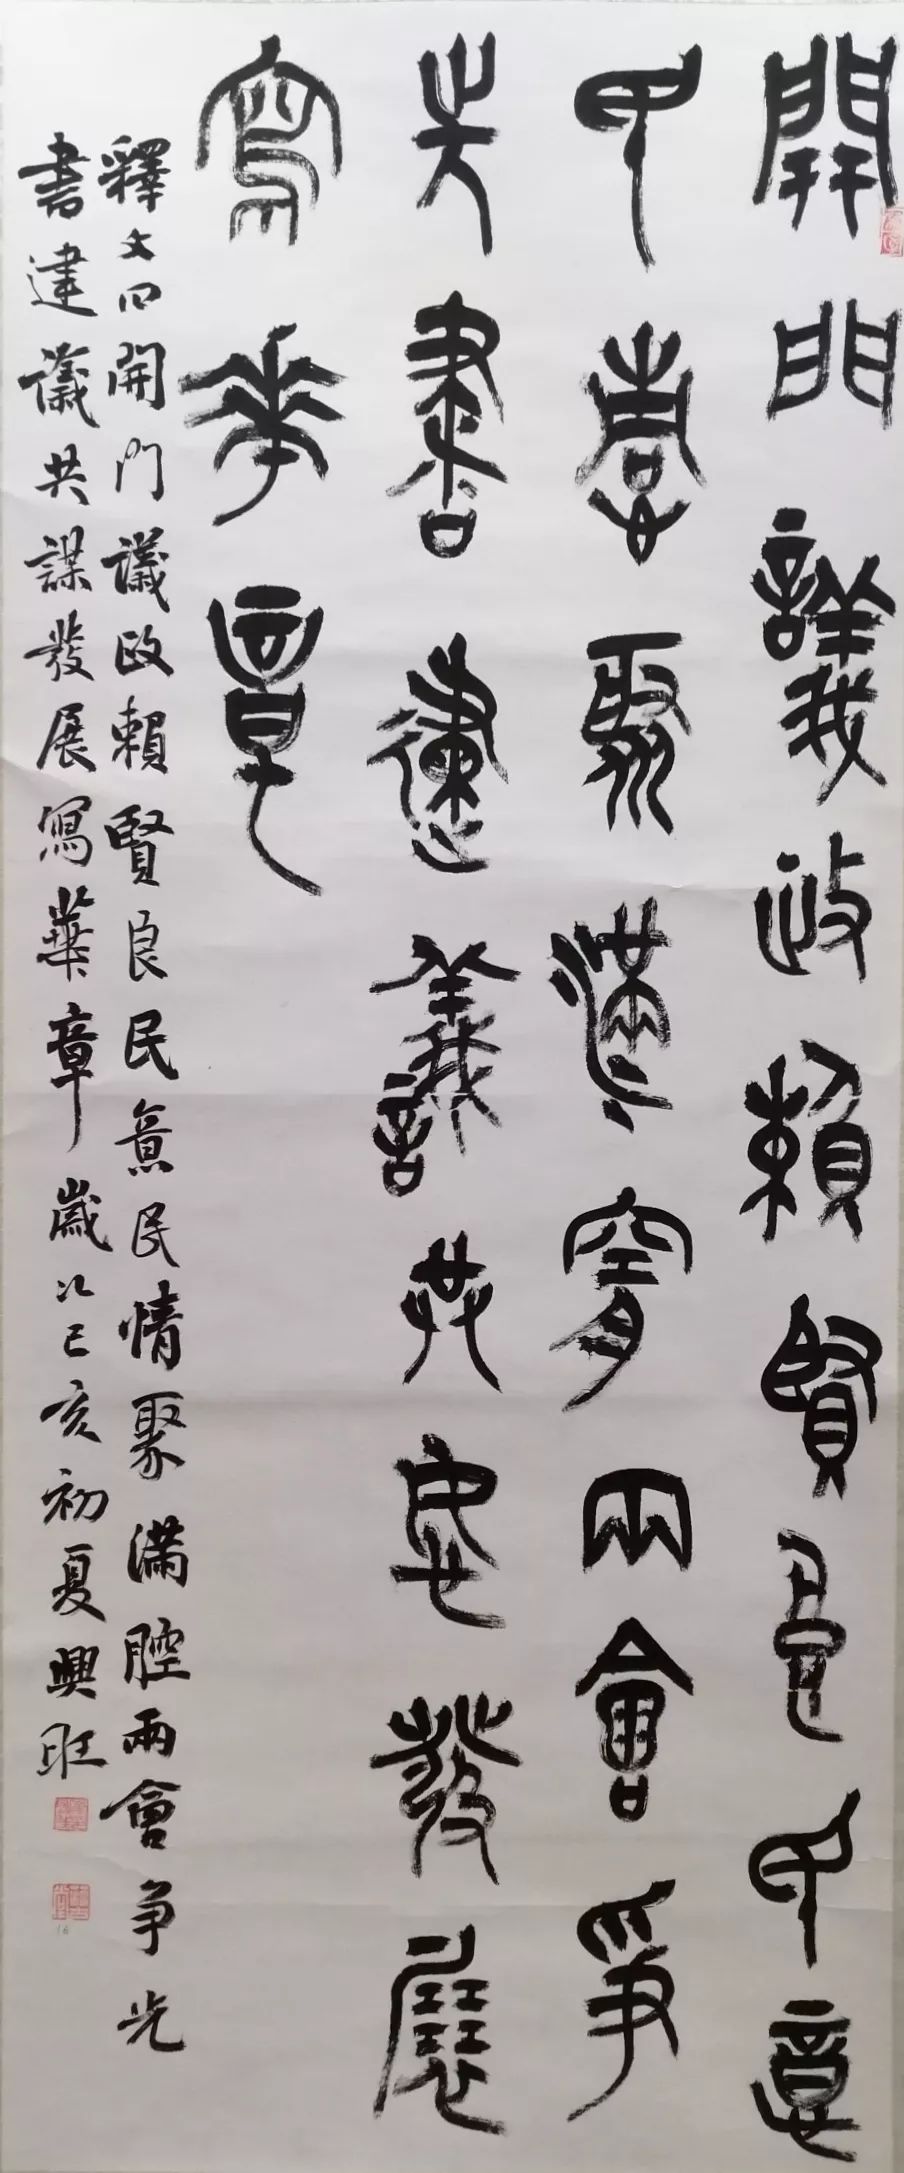 開門議政賴賢良民意
民意聚滿腔兩會爭
光書建議共謀發展
寫華章
釋文曰開門議政賴賢良民意民情聚滿腔兩會爭光
書建議共謀發展寫華章歲次己亥初夏興旺